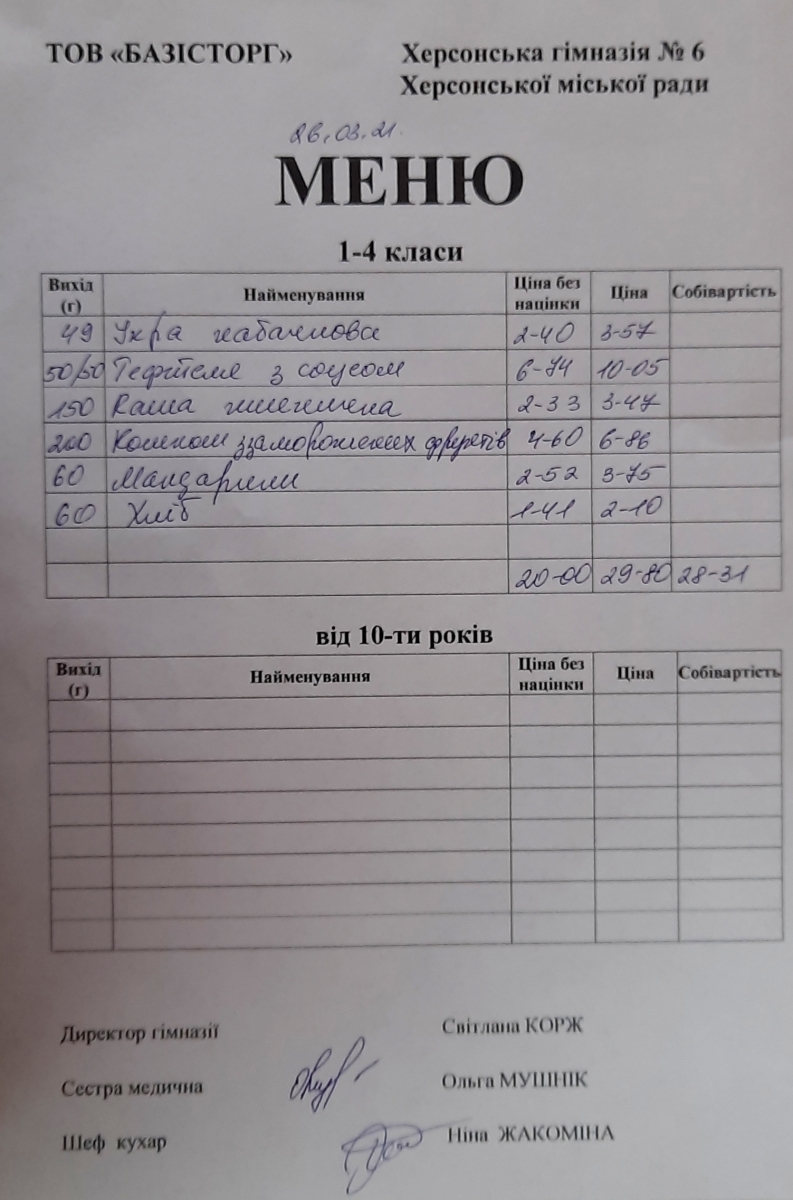 ТОВ «БАЗІСТОРГ» Херсонська гімназія № 6
Херсонської міської ради
26.03.21.
МЕНЮ
1-4 класи
Вихід (г) Найменування Ціна без націнки Ціна Собівартість
49 Ікра кабачкова 2-40 3-57
50/50 Тефтелі з соусом 6-74 10-05
150 Каша пшенична 2-33 3-47
200 Компот з заморожених фруктів 4-60 6-86
60 Мандарини 2-52 3-75
60 Хліб 1-41 2-10
20-00 29-80 28-31
від 10-ти років
Вихід (г) Найменування Ціна без націнки Ціна Собівартість
Директор гімназії Світлана КОРЖ
Сестра медична Ольга МУШНІК
Шеф кухар Ніна ЖАКОМІНА